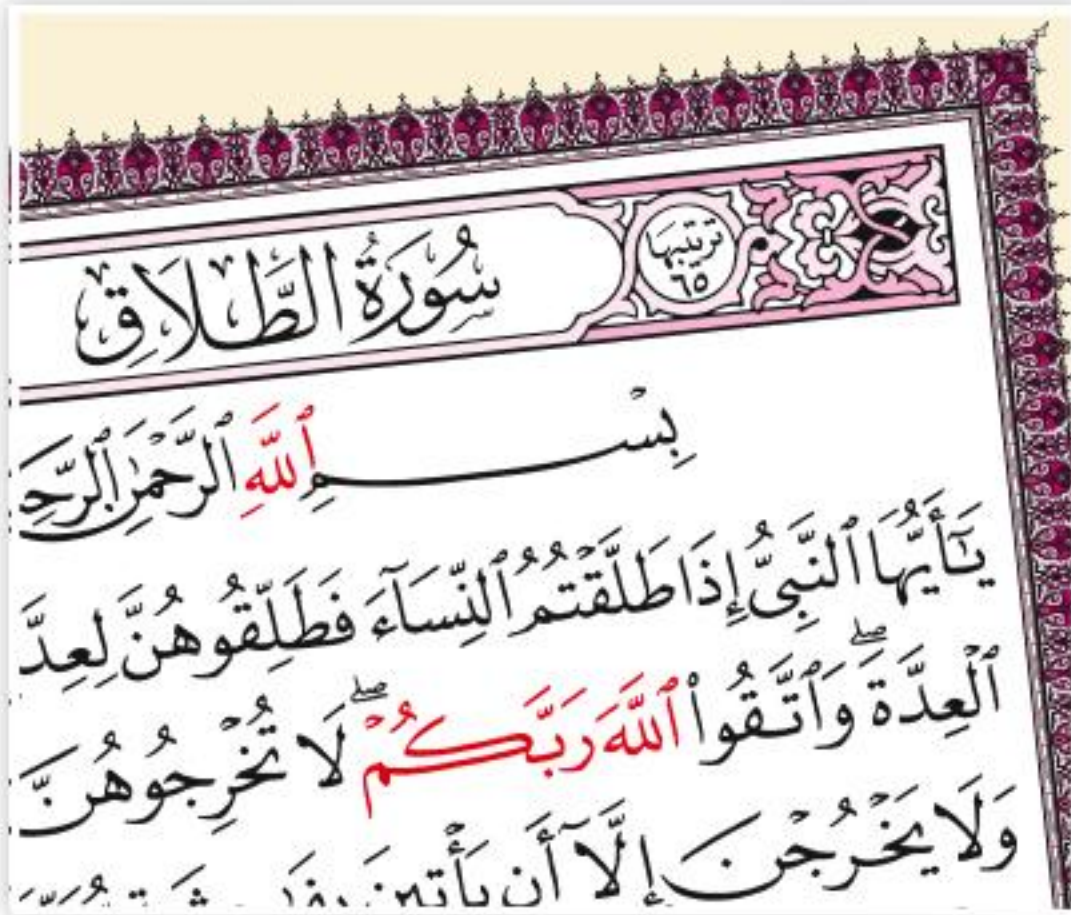 ترتيبها
٦٥
سُورَةُ الطَّلَاقِ
بِسْمِ ٱللَّهِ ٱلرَّحْمَٰنِ ٱلرَّحِ
يَٰٓأَيُّهَا ٱلنَّبِيُّ إِذَا طَلَّقْتُمُ ٱلنِّسَآءَ فَطَلِّقُوهُنَّ لِعِدَّ
ٱلْعِدَّةَۖ وَٱتَّقُوا۟ ٱللَّهَ رَبَّكُمْۖ لَا تُخْرِجُوهُنَّ
وَلَا يَخْرُجْنَ إِلَّآ أَن يَأْتِينَ